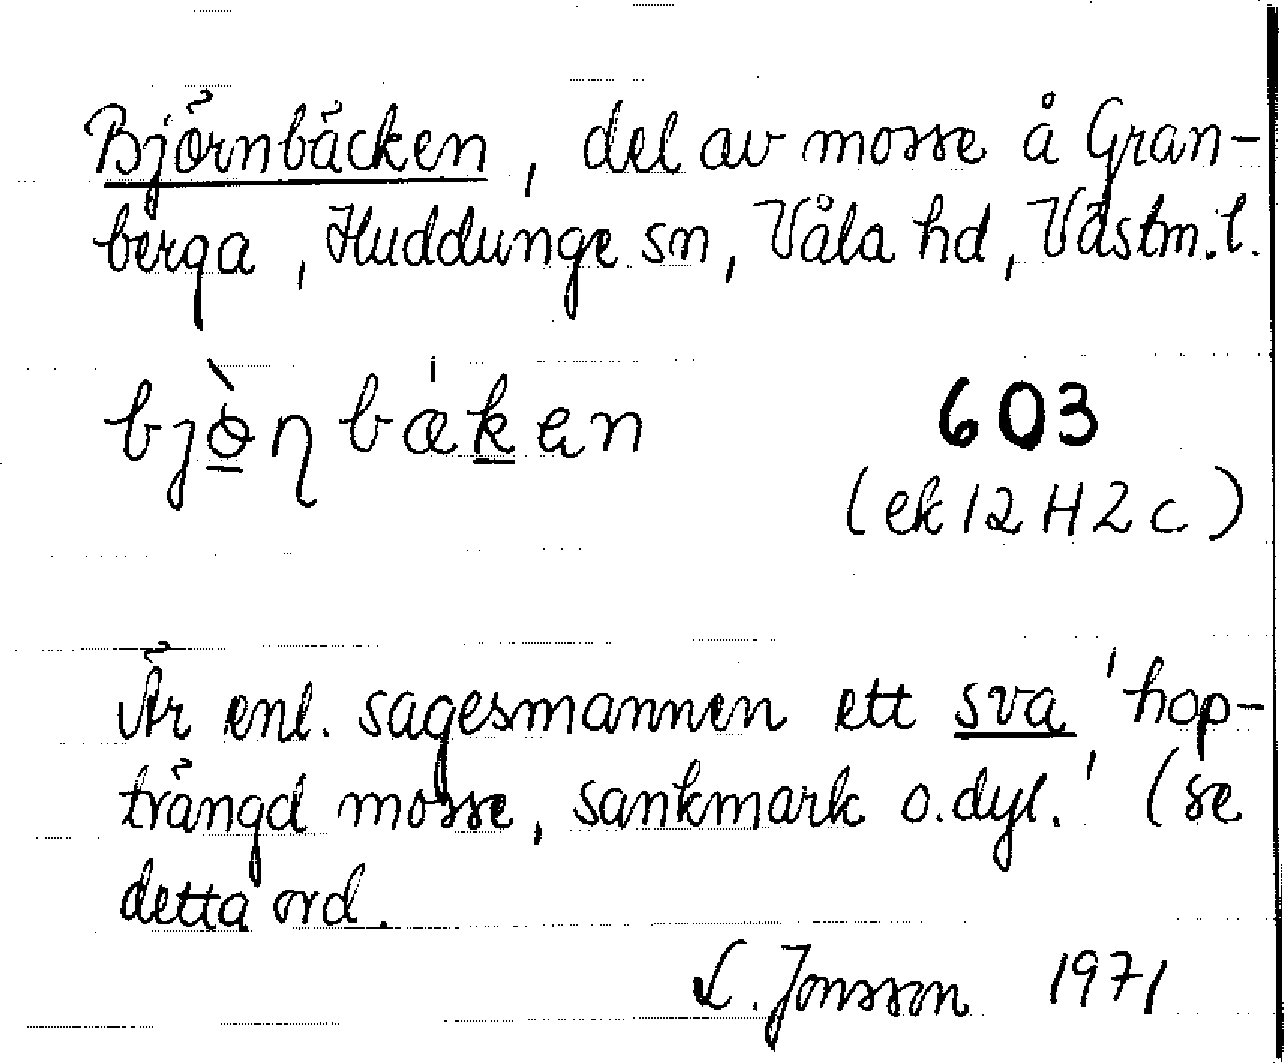 Björnbäcken, del av mosse å Gran-
berga, Huddunge sn, Våla hd, Västm.l.
bjɵ̠̀ɳbæ̍k̠en 603
(ek 12 H 2 c)
Är enl. sagesmannen ett sva 'hop-
trängd mosse, sankmark o.dyl.' (se
detta ord.
L. Jonsson 1971